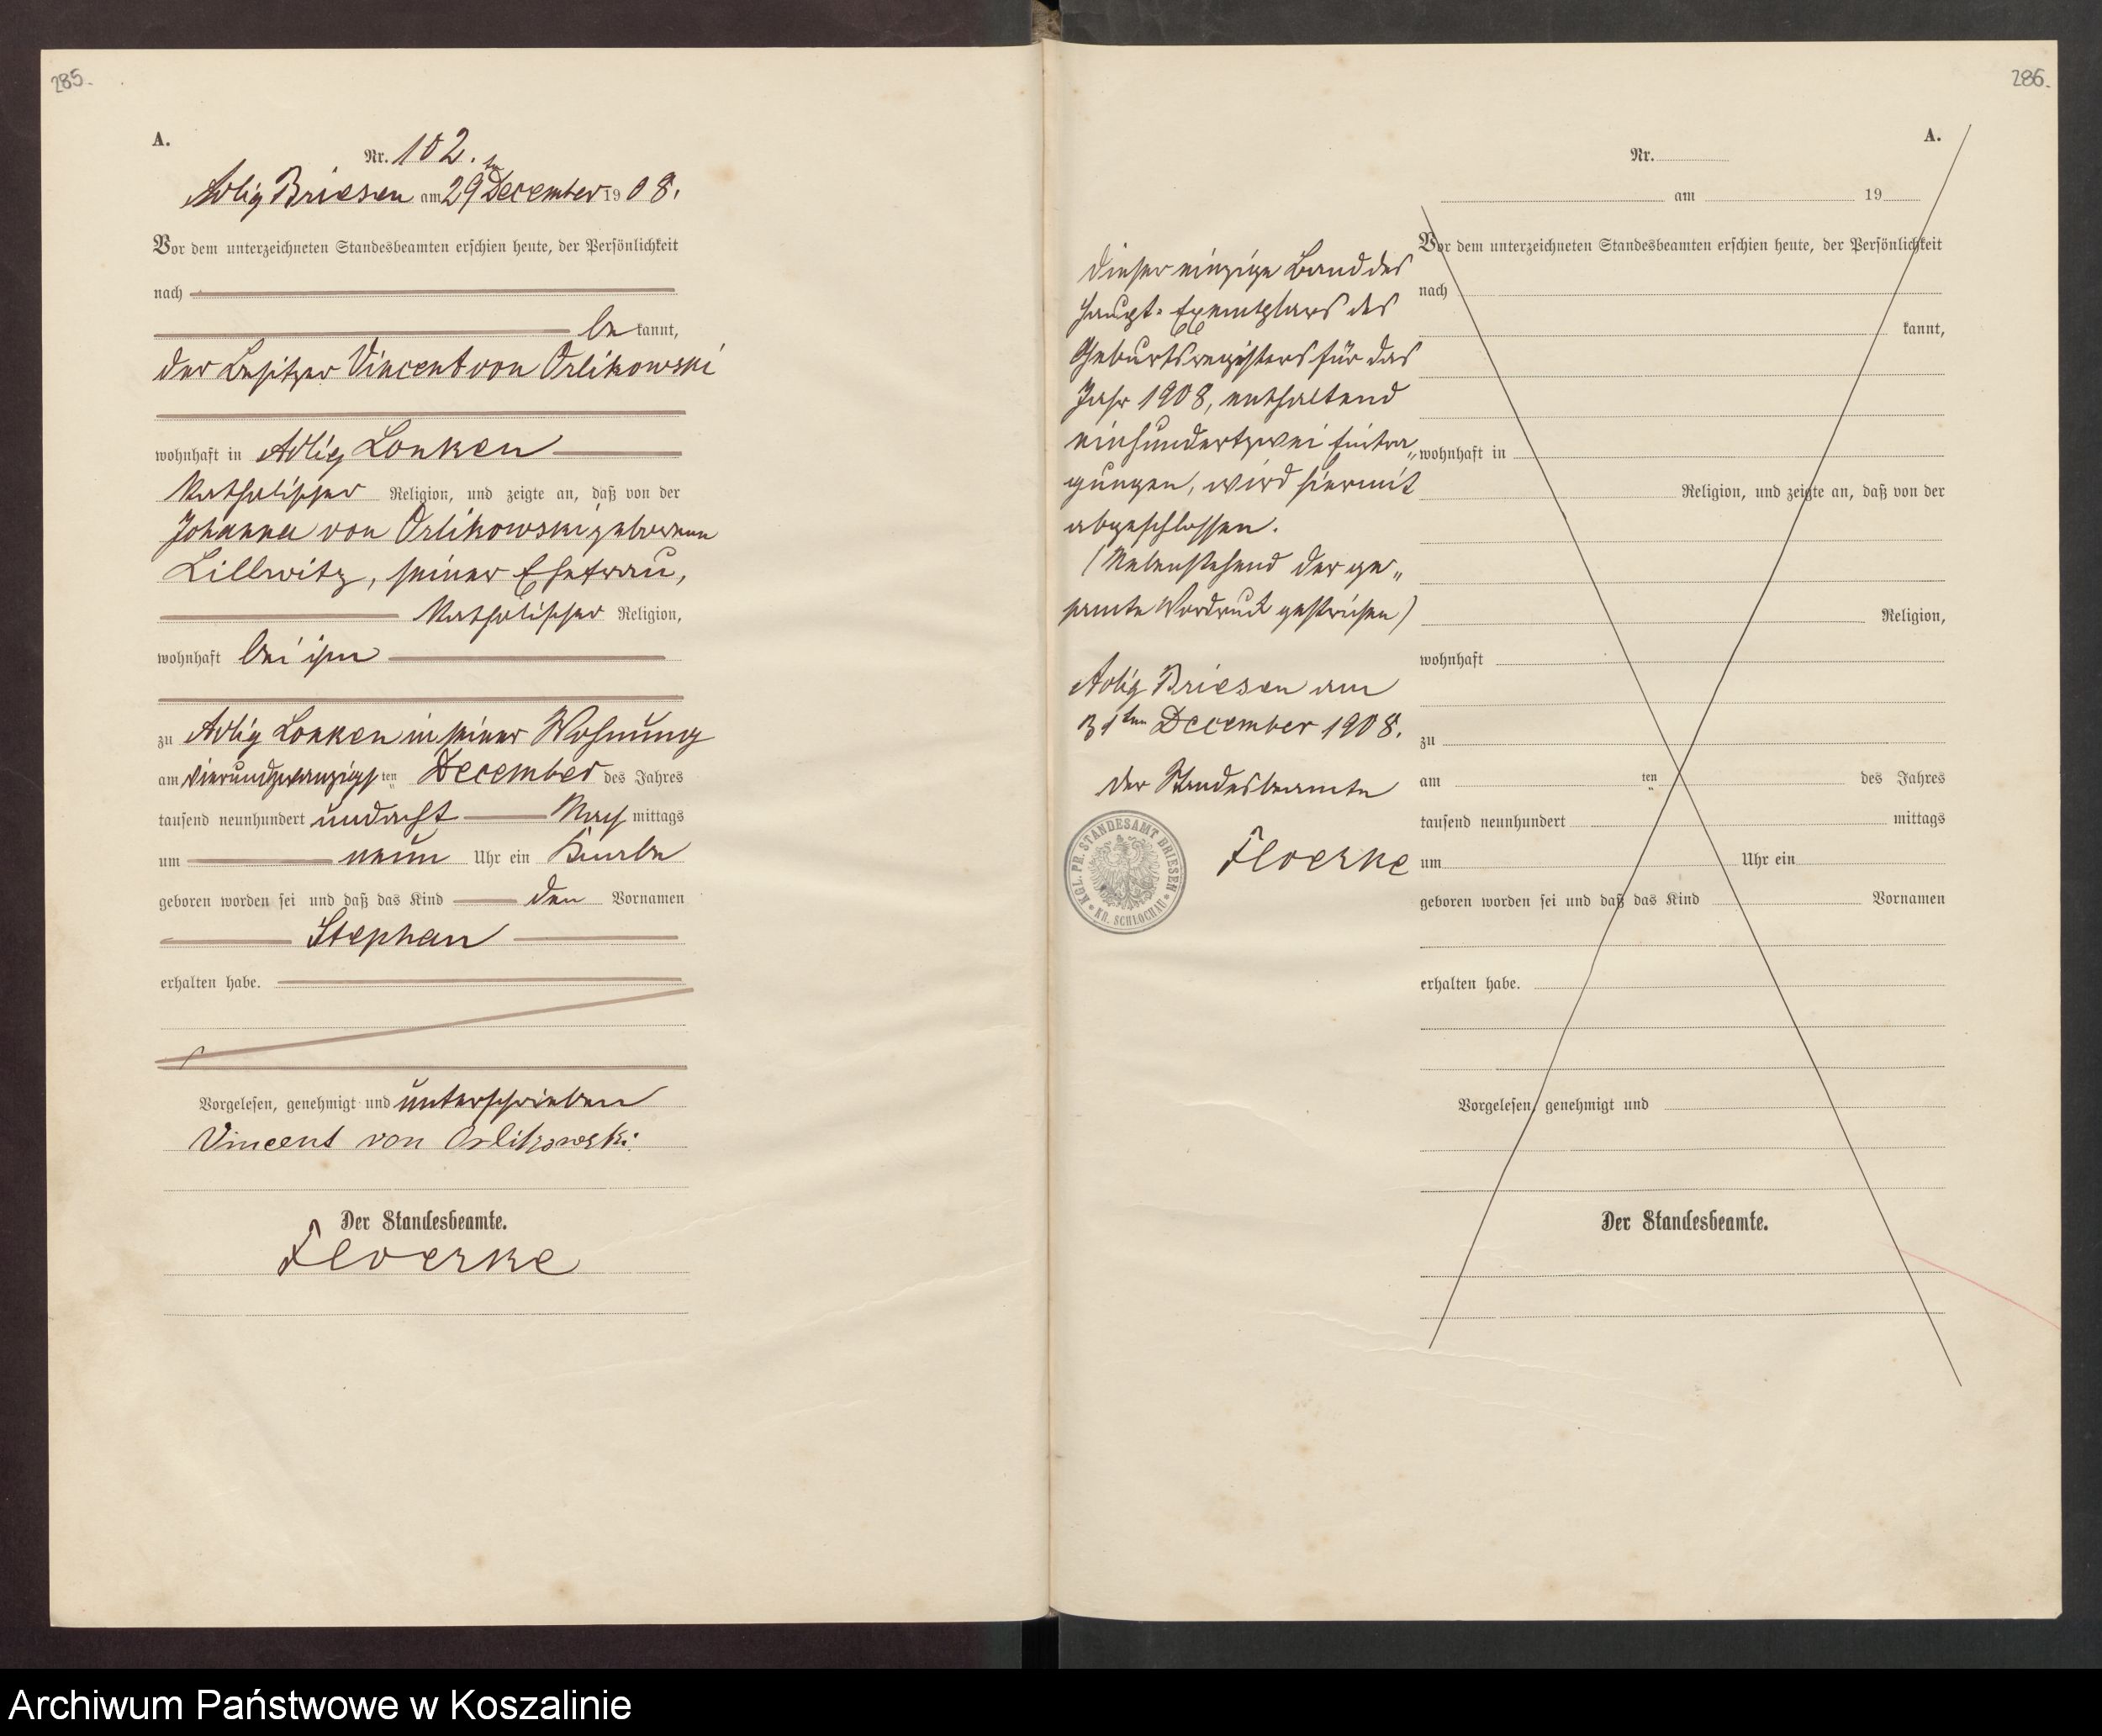 285.
A.
Nr. 102.
Adlig Briesen am 29ten December 1908.
Vor dem unterzeichneten Standesbeamten erschien heute, der Persönlichkeit
nach
be kannt,
der Besitzer Vincent von Orlikowski
wohnhaft in Adlig Lonken
katholischer Religion, und zeigte an, daß von der
Johanna von Orlikowski geborenen
Lillwitz, seiner Ehefrau,
katholischer Religion,
wohnhaft bei ihm
zu Adlig Lonken in seiner Wohnung
am vierundzwanzigsten December des Jahres
tausend neunhundert und acht Nach mittags
um neun Uhr ein Knabe
geboren worden sei und daß das Kind den Vornamen
Stephan
erhalten habe.
Vorgelesen, genehmigt und unterschrieben
Vincent von Orlikowski
Der Standesbeamte.
Floerke
286.
A.
Nr.
am 19
Vor dem unterzeichneten Standesbeamten erschien heute, der Persönlichkeit
nach
kannt,
wohnhaft in
Religion, und zeigte an, daß von der
Religion,
wohnhaft
zu
am ten des Jahres
tausend neunhundert mittags
um Uhr ein
geboren worden sei und daß das Kind Vornamen
erhalten habe.
Vorgelesen, genehmigt und
Der Standesbeamte.
Dieser einzige Band des
Haupt-Exemplars des
Geburtsregisters für das
Jahr 1908, enthaltend
einhundertzwei Eintra„
gungen, wird hiermit
abgeschlossen.
(Nebenstehend der ge„
samte Vordruck gestrichen)
Adlig Briesen am
31ten December 1908.
Der Standesbeamte
Floerke
KGL. PR. STANDESAMT BRIESEN
* KR. SCHLOCHAU *
Archiwum Państwowe w Koszalinie